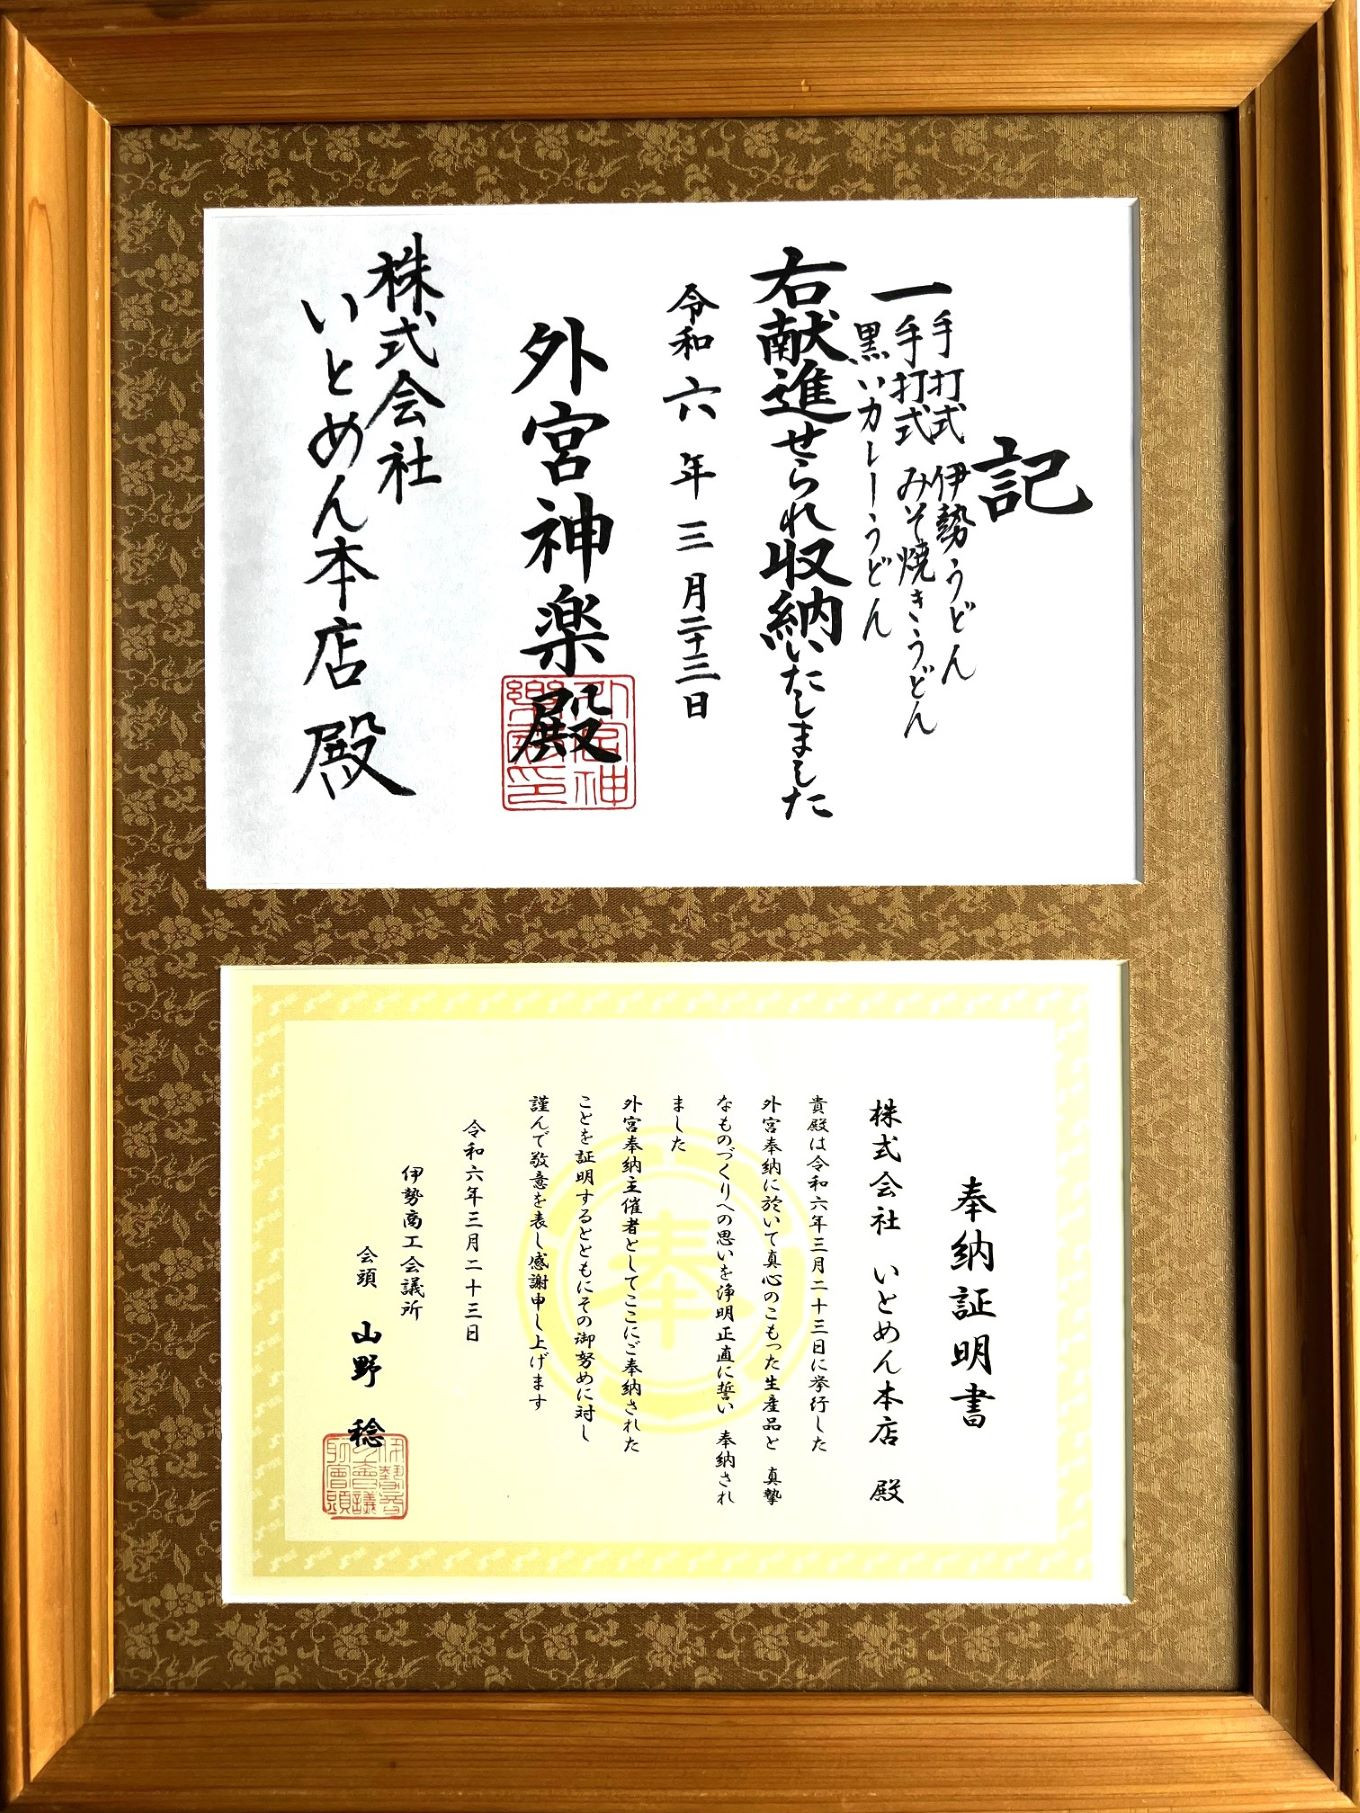 記
一
手打式 伊勢うどん
手打式 みそ焼きうどん
黒いカレーうどん
右献進せられ収納いたしました
令和六年三月二十三日
外宮神楽殿
株式会社
いとめん本店 殿
奉納証明書
株式会社 いとめん本店 殿
貴殿は令和六年三月二十三日に挙行した
外宮奉納に於いて真心のこもった生産品と 真摯
なものづくりへの思いを浄明正直に誓い 奉納され
ました
外宮奉納主催者としてここにご奉納された
ことを証明するとともにその御努めに対し
謹んで敬意を表し感謝申し上げます
令和六年三月二十三日
伊勢商工会議所
会頭 山野 稔
奉